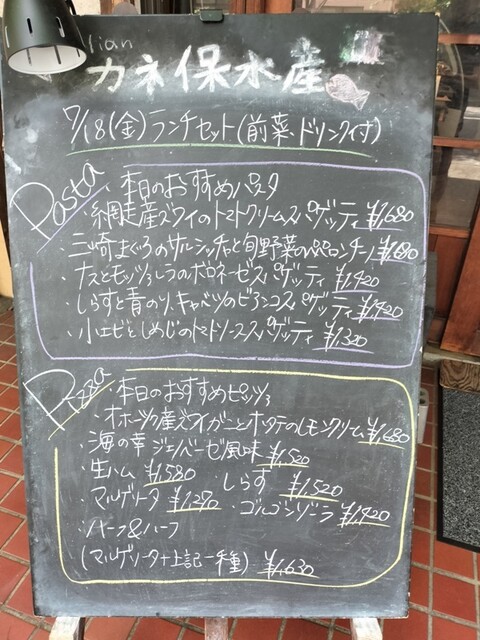 lian
カネ保水産
7/18(金)ランチセット(前菜・ドリンク付)
Pasta
・本日のおすすめパスタ
網走産ズワイのトマトクリームスパゲッティ ¥1,680
三崎まぐろのサルシッチャと旬野菜のペペロンチーノ ¥1,680
・ナスとモッツァレラのボロネーゼスパゲッティ ¥1,420
・しらすと青のり、キャベツのビアンコスパゲッティ ¥1,420
・小エビとしめじのトマトソーススパゲッティ ¥1,320
Pizza
・本日のおすすめピッツァ
オホーツク産ズワイガニとホタテのレモンクリーム ¥1,680
・海の幸 ジェノベーゼ風味 ¥1,520
・生ハム ¥1,580 ・しらす ¥1,520
・マルゲリータ ¥1,270 ・ゴルゴンゾーラ ¥1,420
・ハーフ&ハーフ
(マルゲリータ+上記一種) ¥1,630